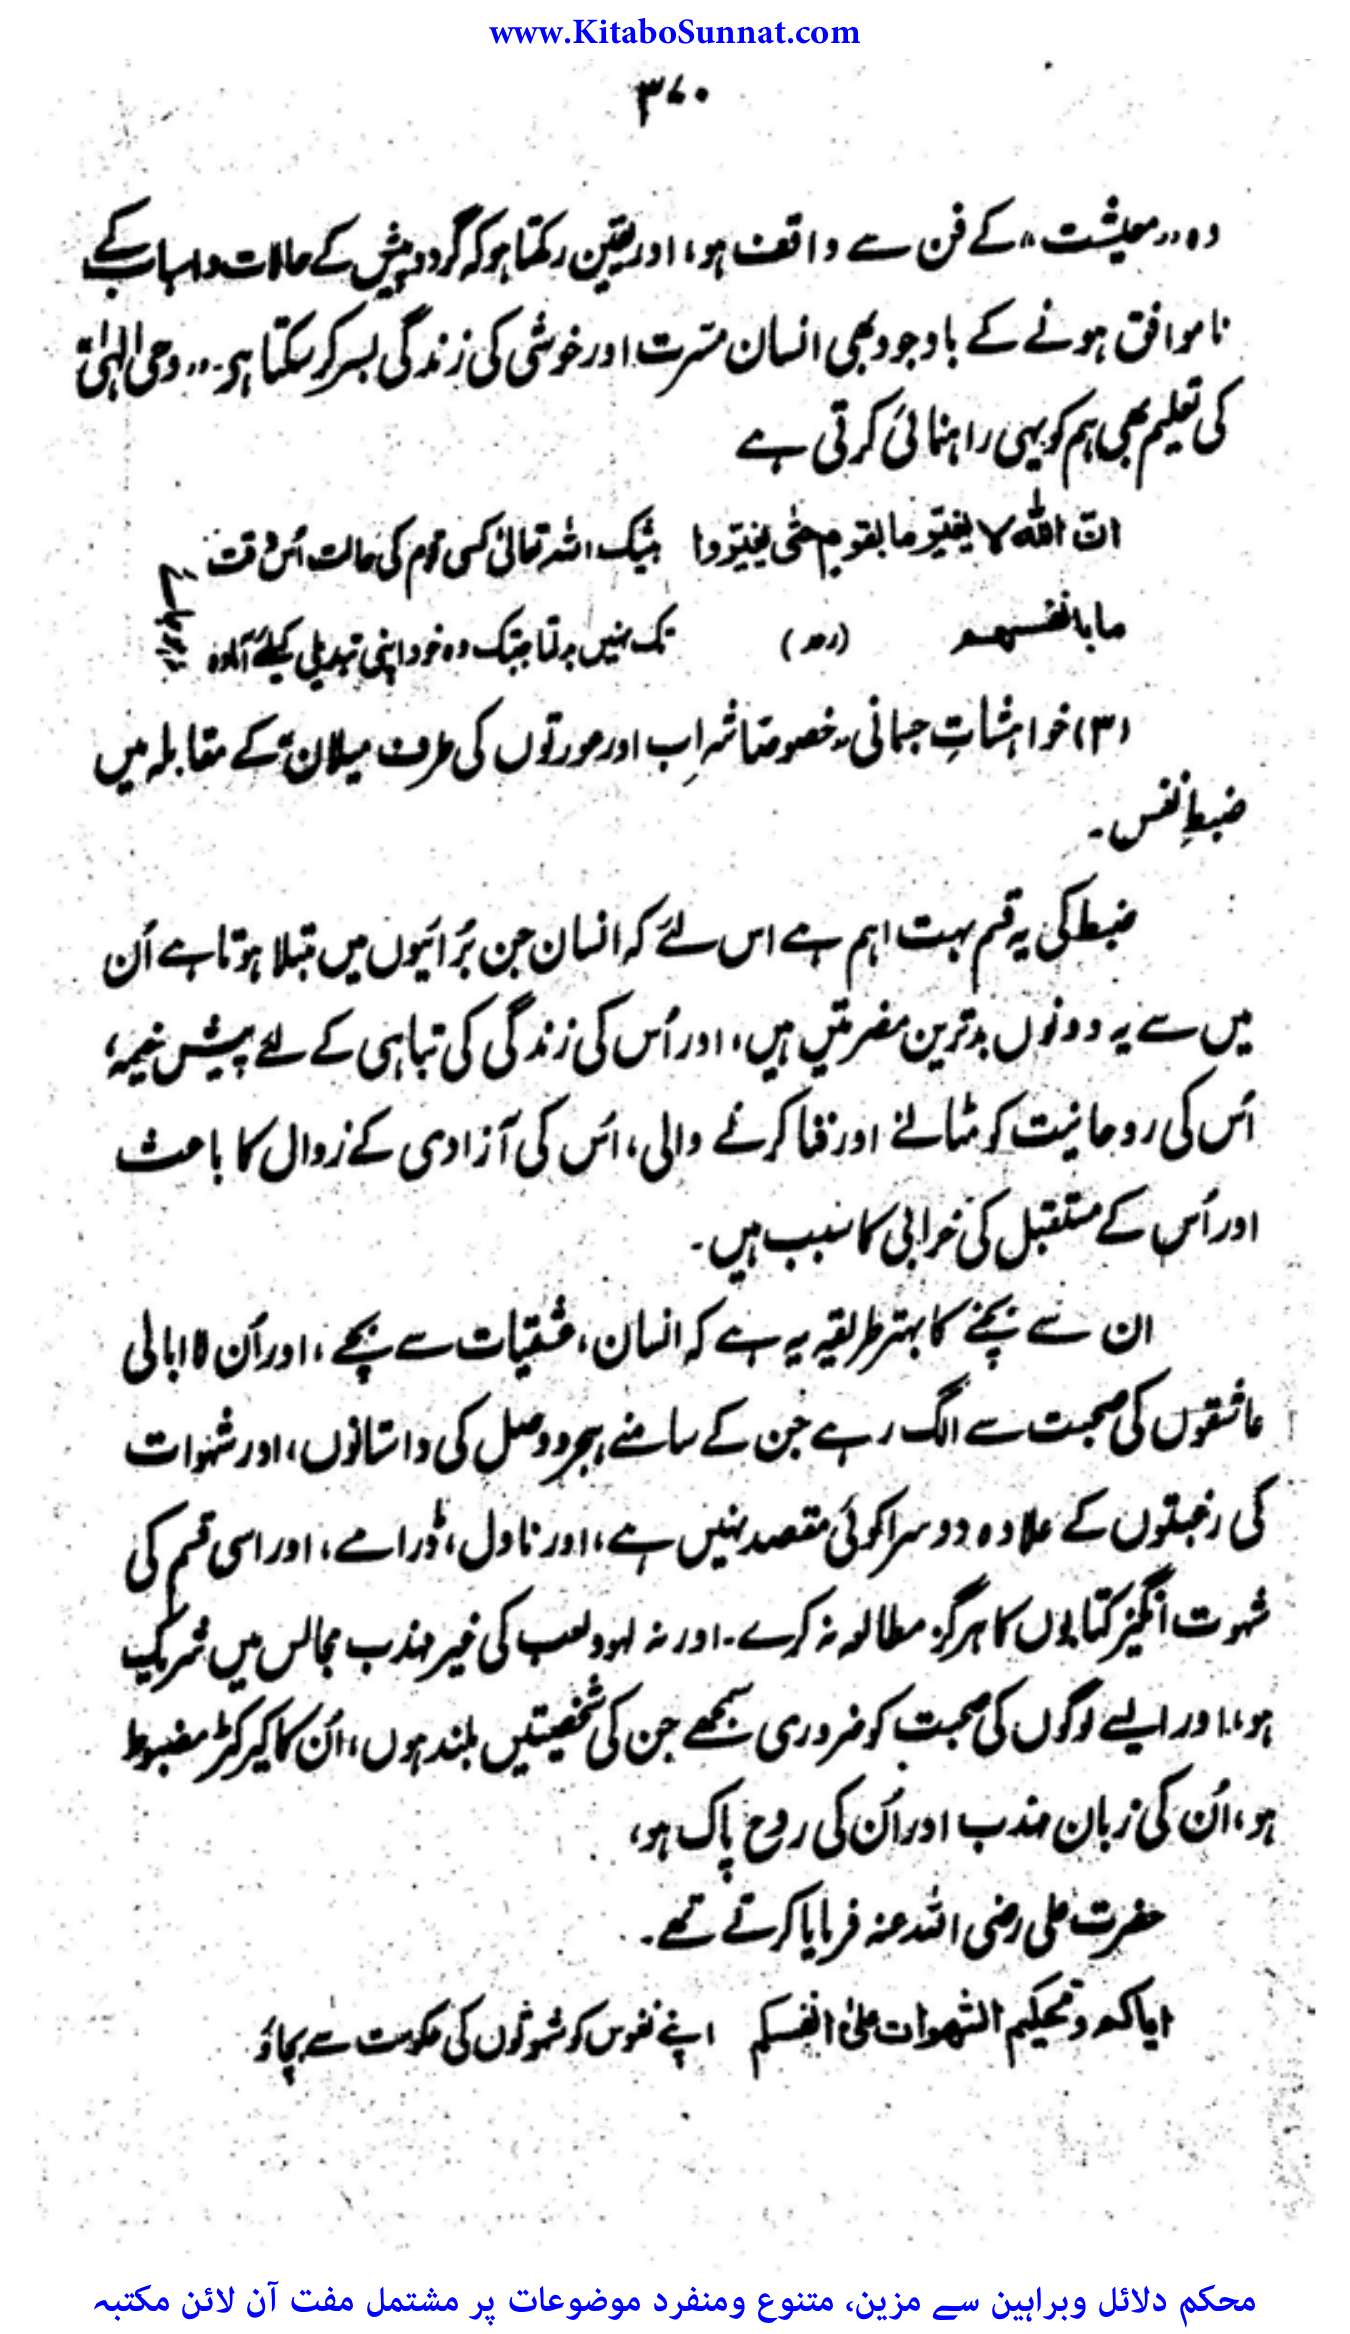 www.KitaboSunnat.com
۳۷۰
وہ "معیشت" کے فن سے واقف ہو، اور یقین رکھتا ہو کہ گردوپیش کے حالات و اسباب کے
ناموافق ہونے کے باوجود بھی انسان مسّرت اور خوشی کی زندگی بسر کر سکتا ہو۔ وحی الٰہی
کی تعلیم بھی ہم کو یہی راہنمائی کرتی ہے
انّ اللہ لا یغیّر ما بقوم حتّٰی یغیّروا بیشک اللہ تعالیٰ کسی قوم کی حالت اُس وقت
ما بانفسھم (رعد) تک نہیں بدلتا جبتک وہ خود اپنی تبدیلی کیلئے آمادہ
(۳) خواہشاتِ جسمانی "خصوصًا شراب اور عورتوں کی طرف میلان" کے مقابلہ میں
ضبطِ نفس۔
ضبط کی یہ قسم بہت اہم ہے اس لئے کہ انسان جن بُرائیوں میں مبتلا ہوتا ہے اُن
میں سے یہ دونوں بدترین مضرتیں ہیں، اور اُس کی زندگی کی تباہی کے لئے پیش خیمہ،
اُس کی روحانیت کو مٹانے اور فنا کرنے والی، اُس کی آزادی کے زوال کا باعث
اور اُس کے مستقبل کی خرابی کا سبب ہیں۔
ان سے بچنے کا بہتر طریقہ یہ ہے کہ انسان، عشقیات سے بچے، اور اُن لا ابالی
عاشقوں کی صحبت سے الگ رہے جن کے سامنے ہجر و وصل کی داستانوں، اور شہوات
کی رغبتوں کے علاوہ دوسرا کوئی مقصد نہیں ہے، اور ناول، ڈرامے، اور اسی قسم کی
شہوت انگیز کتابوں کا ہرگز مطالعہ نہ کرے۔ اور نہ لہو و لعب کی غیر مہذب مجالس میں شریک
ہو، اور ایسے لوگوں کی صحبت کو ضروری سمجھے جن کی شخصیتیں بلند ہوں، اُن کا کیرکٹر مضبوط
ہو، اُن کی زبان مہذب اور اُن کی روح پاک ہو،
حضرت علی رضی اللہ عنہ فرمایا کرتے تھے۔
ایاکم وتحکیم الشھوات علیٰ انفسکم اپنے نفوس کو شہوتوں کی حکومت سے بچاؤ
محکم دلائل وبراہین سے مزین، متنوع ومنفرد موضوعات پر مشتمل مفت آن لائن مکتبہ